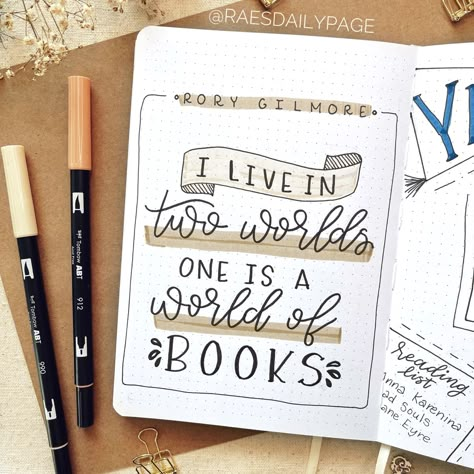 @RAESDAILYPAGE
RORY GILMORE
I LIVE IN
two worlds
ONE IS A
world of
BOOKS
Tombow ABT
912
Tombow ABT
990
reading
list
Anna Karenina
Eyre